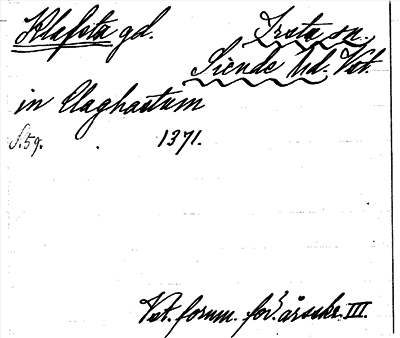 Klafsta gd. Irsta sn.
Siende hd. Vst.
in Claghastum
S. 59. 1371.
Vst. fornm. för:s årsskr. III.